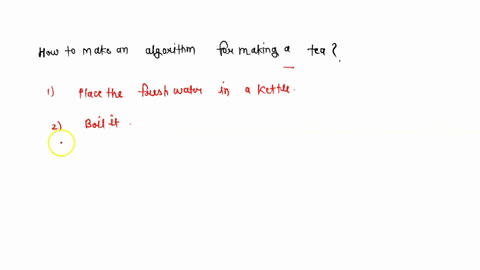 How to make an algorithm for making a tea?
1) Place the fresh water in a kettle.
2) Boil it.